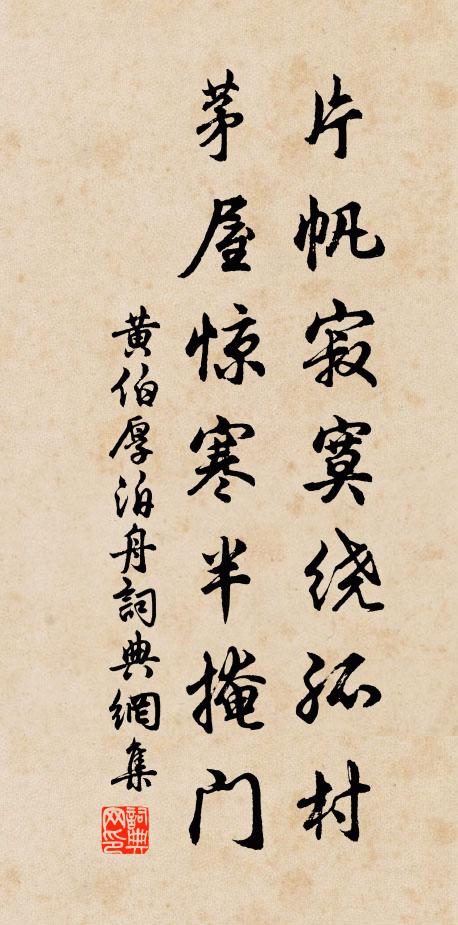 片帆寂寞绕孤村
茅屋惊寒半掩门
黄伯厚泊舟詞典網集
詞典网印